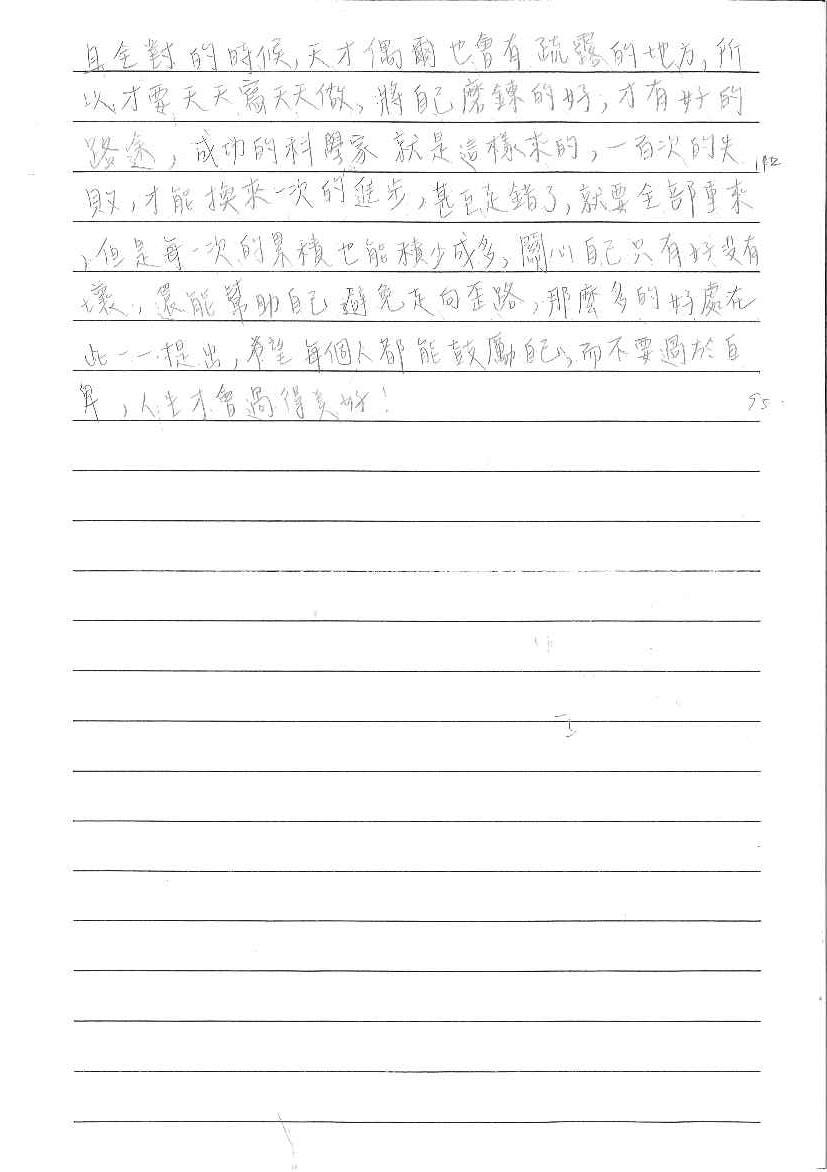 且全對的時候,天才偶爾也會有疏露的地方,所
以才要天天寫天天做,將自己磨鍊的好,才有好的
路途,成功的科學家就是這樣來的,一百次的失
敗,才能換來一次的進步,甚至走錯了,就要全部重來
,但是每一次的累積也能積少成多,關心自己只有好沒有
壞,還能幫助自己避免走向歪路,那麼多的好處在
此一一提出,希望每個人都能鼓勵自己,而不要過於自
卑,人生才會過得美好!
95.